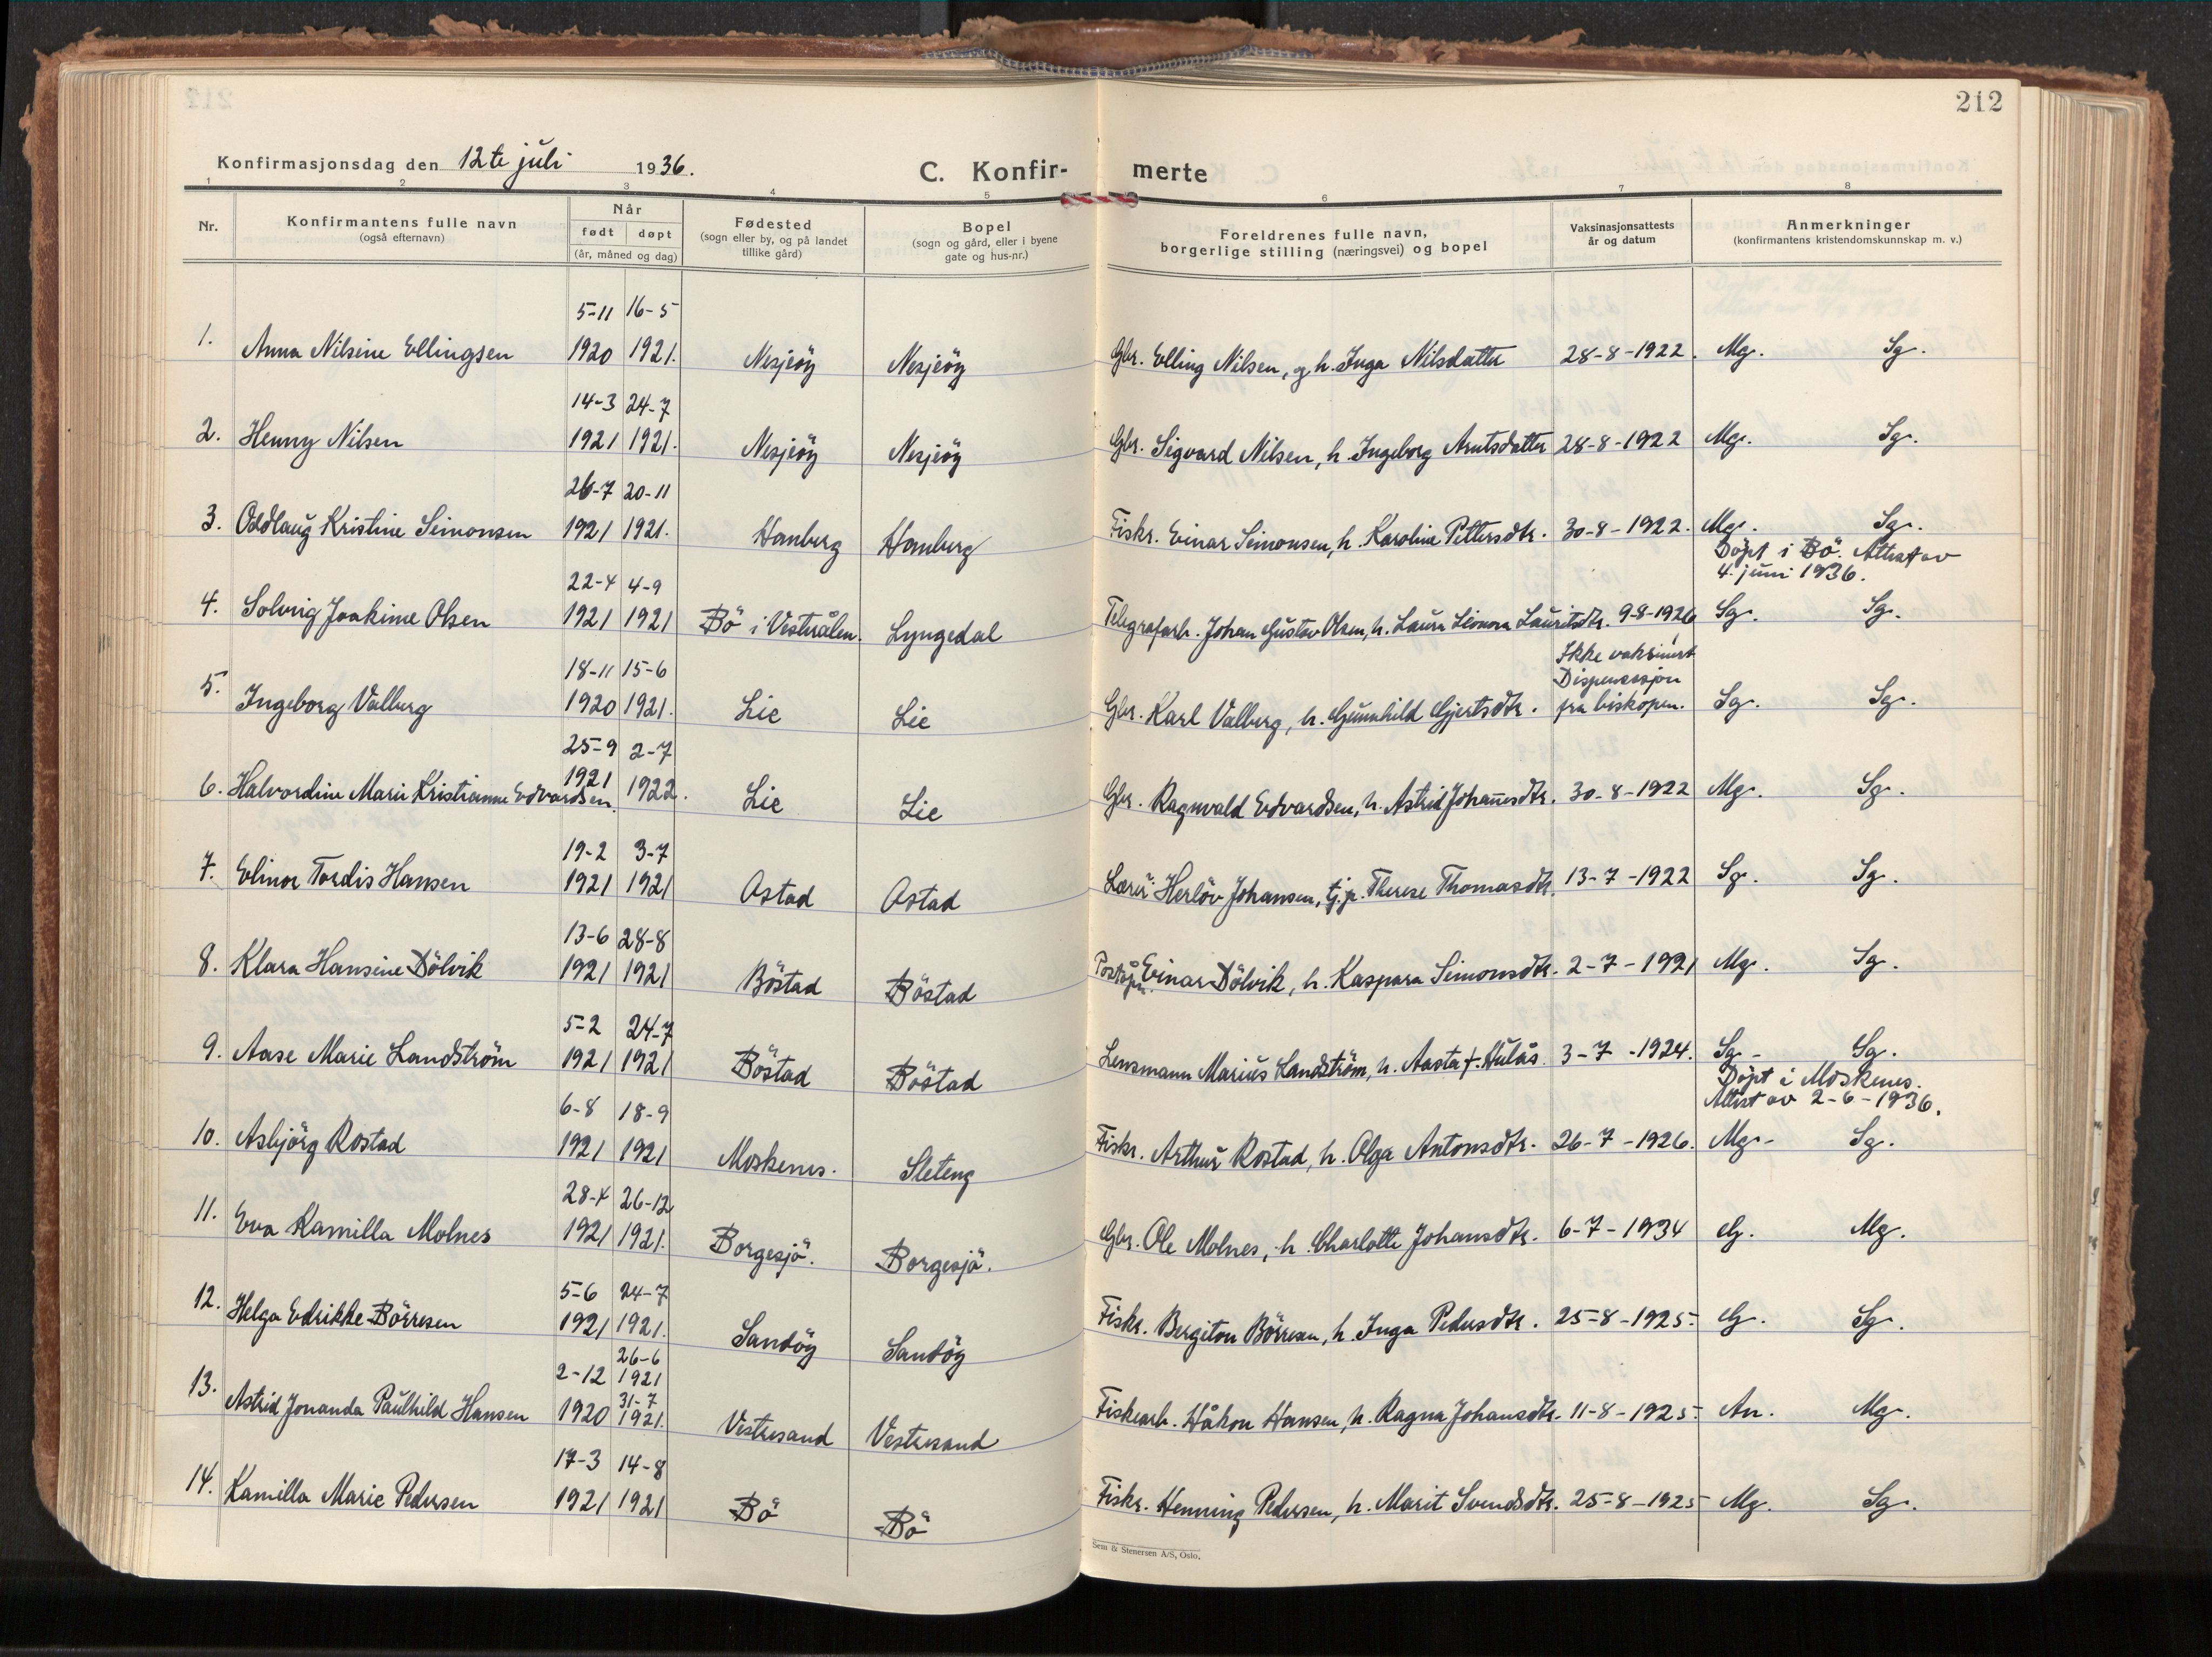 212
Konfirmasjonsdag den 12te juli 1936.
C. Konfir-
merte
1 2 3 4 5 6 7 8
Nr.
Konfirmantens fulle navn
(også efternavn)
Når
født døpt
(år, måned og dag)
Fødested
(sogn eller by, og på landet
tillike gård)
Bopel
(sogn og gård, eller i byene
gate og hus-nr.)
Foreldrenes fulle navn,
borgerlige stilling (næringsvei) og bopel
Vaksinasjonsattests
år og datum
Anmerkninger
(konfirmantens kristendomskunnskap m. v.)
5-11 16-5
1. Anna Nilsine Ellingsen 1920 1921. Nesjeöy Nesjeöy Gbr. Elling Nilsen, og h. Inga Nilsdatter 28-8-1922. Mg. Sg.
14-3 24-7
2. Henny Nilsen 1921 1921. Nesjeöy Nesjeöy Gbr. Sigvard Nilsen, h. Ingeborg Arntsdatter 28-8-1922 Mg. Sg.
26-7 20-11
3. Oddlaug Kristine Simonsen 1921 1921. Hamberg Hamberg Fiskr. Einar Simonsen, h. Karoline Pettersdtr. 30-8-1922. Mg. Sg.
Döpt i Bö. Attest av
4. juni 1936.
22-4 4-9
4. Solveig Joakime Olsen 1921 1921 Bö i Vesterålen. Lyngedal Telegrafarb. Johan Gustav Olsen, h. Laura Leonora Lauritsdtr. 9-8-1926 Sg. Sg.
Ikke vaksinert
Dispensasjon
18-11 15-6
5. Ingeborg Valberg 1920 1921. Lie Lie Gbr. Karl Valberg, h. Gunnhild Gjertsdtr. fra biskopen. Sg. Sg.
25-9 2-7
6. Halvordine Marie Kristianne Edvardsen 1921 1922. Lie Lie Gbr. Ragnvald Edvardsen, h. Astrid Johannesdtr. 30-8-1922 Mg. Sg.
19-2 3-7
7. Elinor Tordis Hansen 1921 1921 Ostad Ostad Lærer Herlöv Johansen, Therese Thomasdtr. 13-7-1922 Sg. Sg.
13-6 28-8
8. Klara Hansine Dölvik 1921 1921 Böstad Böstad Poståpn. Einar Dölvik, h. Kaspara Simonsdtr. 2-7-1921 Mg. Sg.
5-2 24-7
9. Aase Marie Landström 1921 1921 Böstad Böstad Lensmann Marius Landström, h. Aasta f. Hulås. 3-7-1924. Sg- Sg.
Döpt i Moskenes.
Attest av 2-6-1936.
6-8 18-9
10. Asbjörg Rostad 1921 1921 Moskenes. Sleteng Fiskr. Arthur Rostad, h. Olga Antonsdtr. 26-7-1926. Mg- Sg.
28-4 26-12
11. Eva Kamilla Molnes 1921 1921. Borgesjö. Borgesjö. Gbr. Ole Molnes, h. Charlotte Johansdtr. 6-7-1934 G. Mg.
5-6 24-7
12. Helga Edrikke Börresen 1921 1921. Sandöy Sandöy Fiskr. Bergiton Börresen, h. Inga Pedersdtr. 25-8-1925. G. Sg.
26-6
2-12 1921
31-7
13. Astrid Jonanda Paulhild Hansen 1920 1921. Vestresand Vestresand Fiskearb. Håkon Hansen, h. Ragna Johansdtr. 11-8-1925. An. Mg.
17-3 14-8
14. Kamilla Marie Pedersen 1921 1921 Bö Bö Fiskr. Henning Pedersen, h. Marit Svendsdtr. 25-8-1925 Mg. Sg.
Sem & Stenersen A/S, Oslo.